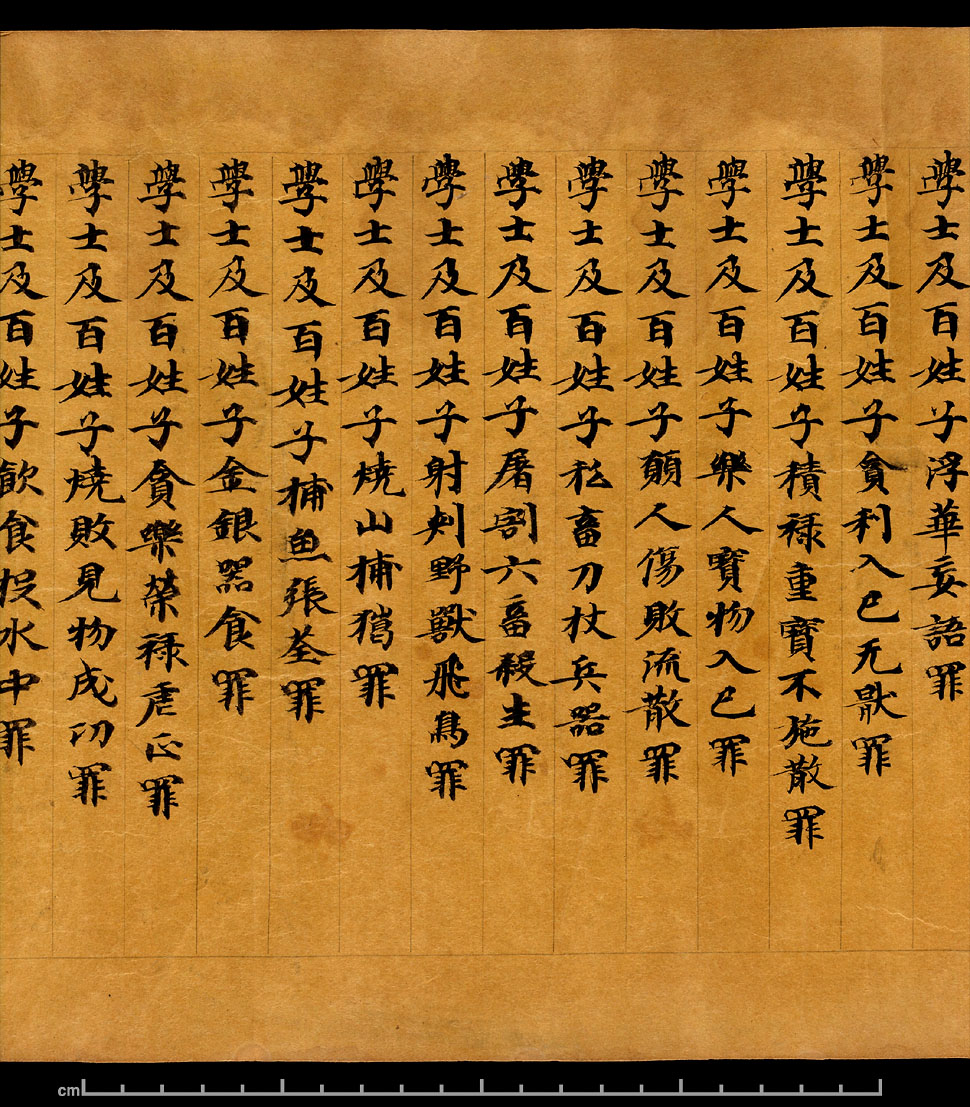 學士及百姓子浮華妄語罪
學士及百姓子貪利入己无猒罪
學士及百姓子積禄重寶不施散罪
學士及百姓子樂人寶物入己罪
學士及百姓子願人傷敗流散罪
學士及百姓子私畜刀杖兵器罪
學士及百姓子屠割六畜殺生罪
學士及百姓子射刺野獸飛鳥罪
學士及百姓子燒山捕獦罪
學士及百姓子捕魚張筌罪
學士及百姓子金銀器食罪
學士及百姓子貪樂榮禄虐政罪
學士及百姓子燒敗見物成功罪
學士及百姓子飲食投水中罪
cm